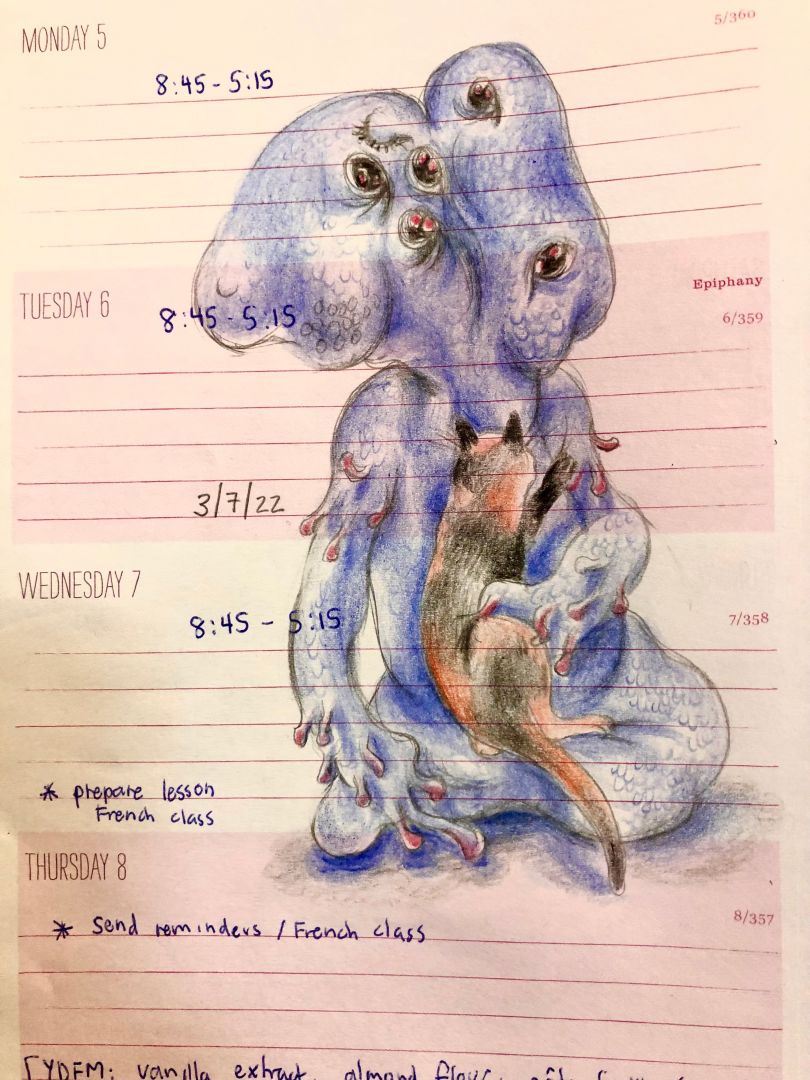 MONDAY 5
5/360
8:45 - 5:15
Epiphany
TUESDAY 6
8:45 - 5:15
6/359
3/7/22
WEDNESDAY 7
8:45 - 5:15
7/358
* prepare lesson
French class
THURSDAY 8
8/357
* Send reminders / French class
vanilla extract, almond